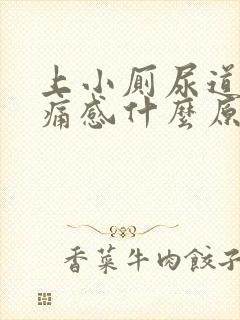 上小厕尿道
痛感什麼原
香菜牛肉餃子